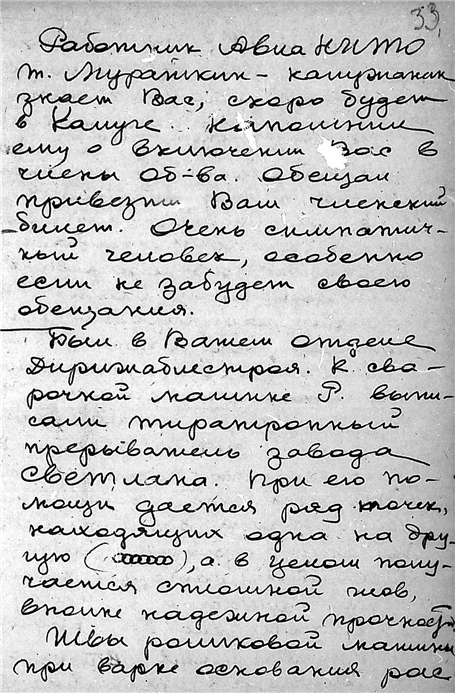 33
Работник АвиаНИТО
т. Мурашкин - калужанин
знает Вас, скоро будет
в Калуге. Напомнил
ему о включении Вас в
члены Об-ва. Обещал
привезти Вам членский
билет. Очень симпатич-
ный человек, особенно
если не забудет своего
обещания.
Был в Вашем отделе
Дирижаблестроя. К сва-
рочной машине Р. выпи-
сали тиратронный
прерыватель завода
Светлана. При его по-
мощи дается ряд точек,
находящих одна на дру-
гую ( ), а в целом полу-
чается сплошной шов,
вполне надежной прочности.
Швы роликовой машины
при варке основания рас